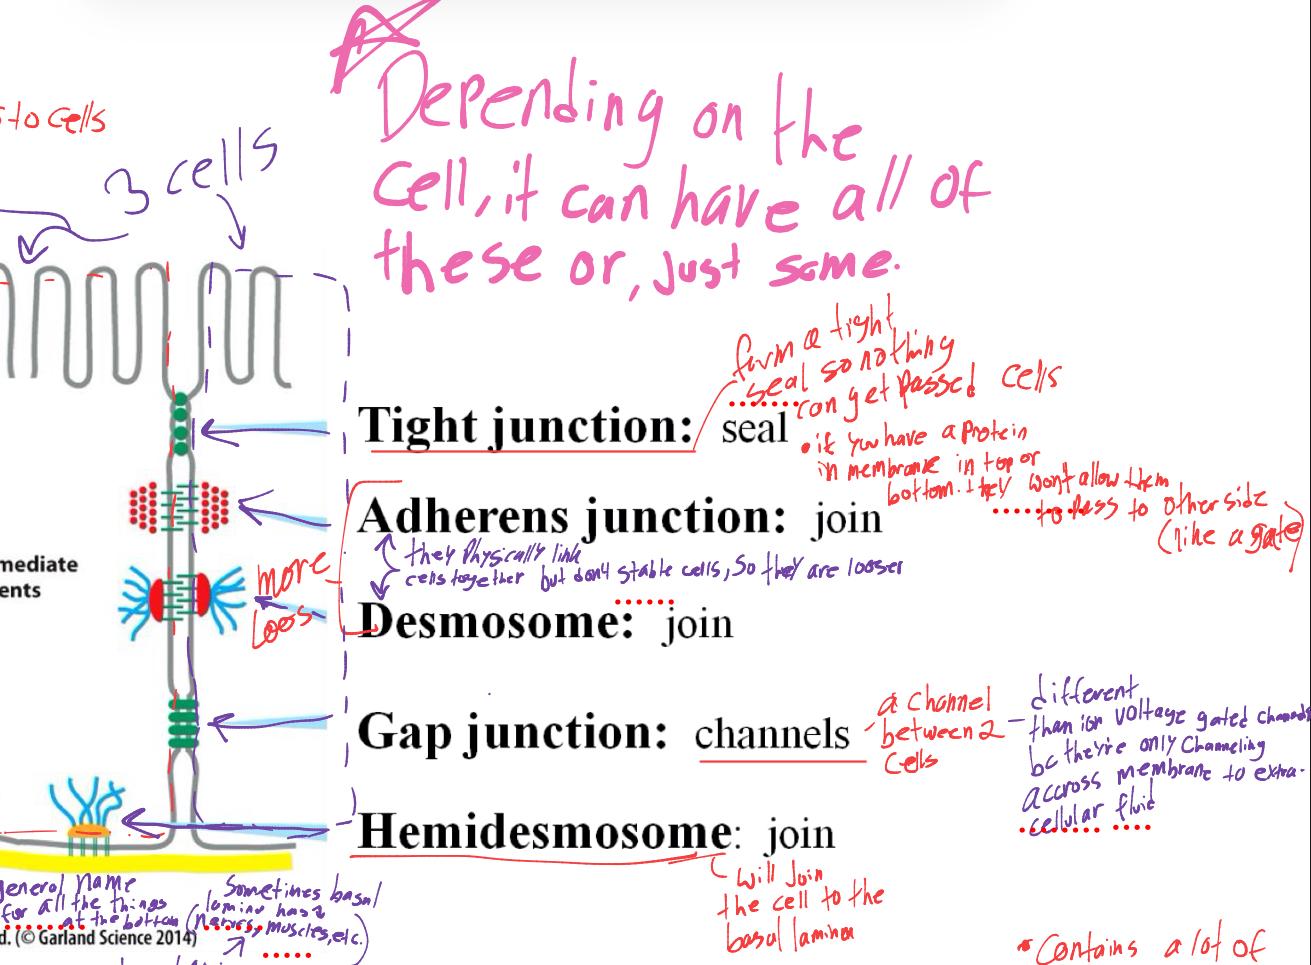 Depending on the
cell, it can have all of
these or, just some.
s to cells
3 cells
form a tight
seal so nothing
can get passed cells
Tight junction: seal
• if you have a protein
in membrane in top or
bottom. they won't allow them
to pass to other side
(like a gate)
Adherens junction: join
they physically link
cells together but don't stable cells, so they are looser
mediate
ents
more
loos
Desmosome: join
Gap junction: channels
a channel
between 2
cells
different
than ion voltage gated channels
bc they're only channeling
accross membrane to extra-
cellular fluid
Hemidesmosome: join
will join
the cell to the
basal lamina
general name
for all the things
at the bottom
Sometimes basal
lamina has
(nerves, muscles, etc.)
d. (© Garland Science 2014)
• Contains a lot of